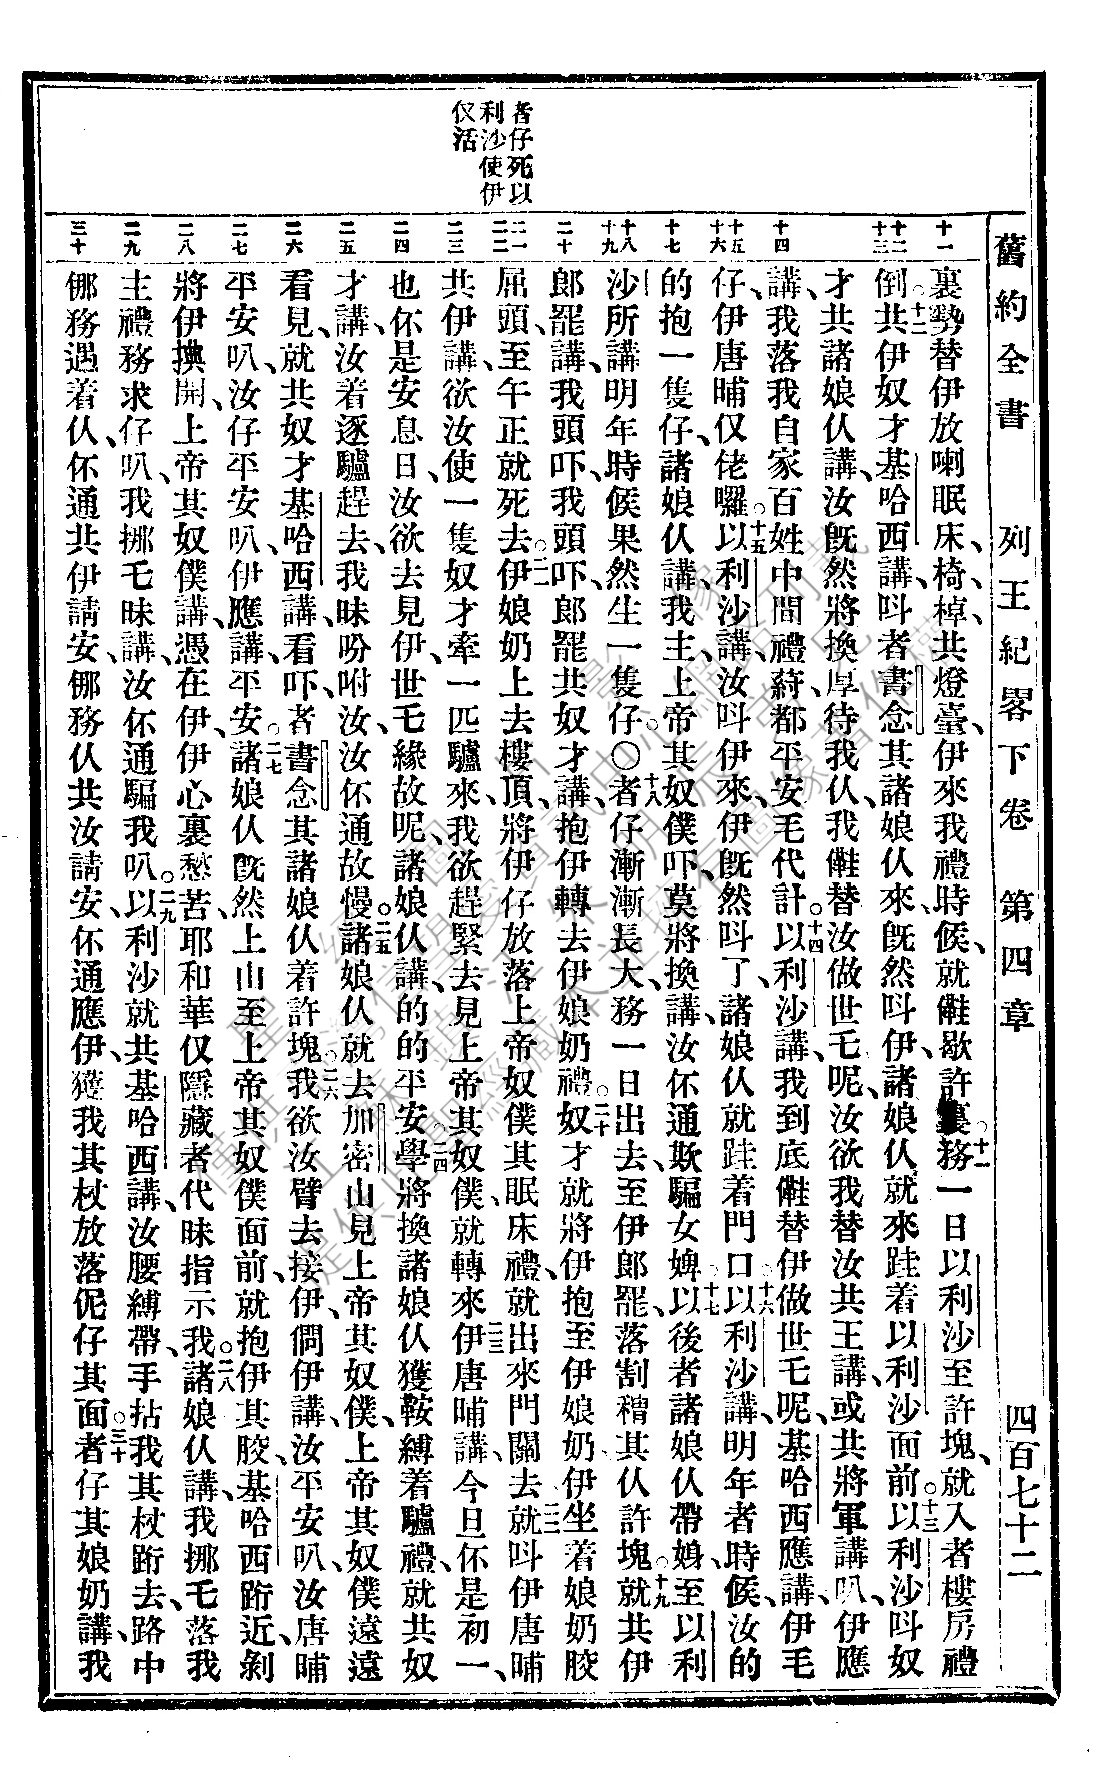 舊約全書 列王紀畧下卷 第四章 四百七十二
者仔死以
利沙使伊
仅活
十一
十二
十三
十四
十五
十六
十七
十八
十九
二十
二一
二二
二三
二四
二五
二六
二七
二八
二九
三十
裏勢替伊放喇眠床、椅、棹、共燈臺、伊來我禮時候、就𣍐歇許裏。十一務一日以利沙至許塊、就入者樓房禮
倒。十二共伊奴才基哈西講、叫者書念其諸娘仈來、既然叫伊、諸娘仈就來跬着以利沙面前。十三以利沙叫奴
才共諸娘仈講、汝既然將換厚待我仈、我𣍐替汝做世乇呢、汝欲我替汝共王講、或共將軍講叭、伊應
講、我落我自家百姓中間禮、薌都平安毛代計。十四以利沙講、我到底𣍐替伊做世乇呢、基哈西應講、伊毛
仔、伊唐晡仅佬囉。十五以利沙講、汝叫伊來、伊既然叫了、諸娘仈就跬着門口。十六以利沙講、明年者時候、汝的
的抱一隻仔、諸娘仈講、我主、上帝其奴僕吓、莫將換講、汝伓通欺騙女婢。十七以後者諸娘仈帶娠、至以利
沙所講明年時候、果然生一隻仔。〇十八者仔漸漸長大、務一日出去、至伊郎罷、落割稰其仈許塊。十九就共伊
郎罷講、我頭吓、我頭吓、郎罷共奴才講、抱伊轉去伊娘奶禮。二十奴才就將伊抱至伊娘奶、伊坐着娘奶骹
屈頭、至午正就死去。二一伊娘奶上去樓頂、將伊仔放落上帝奴僕其眠床禮、就出來門關去。二二就叫伊唐晡
共伊講、欲汝使一隻奴才、牽一匹驢來、我欲趕緊去見上帝其奴僕、就轉來。二三伊唐晡講、今旦伓是初一、
也伓是安息日、汝欲去見伊、世乇緣故呢、諸娘仈講、的的平安。二四學將換諸娘仈獲鞍縛着驢禮、就共奴
才講、汝着逐驢趕去、我昧吩咐汝、汝伓通故慢。二五諸娘仈就去加密山、見上帝其奴僕、上帝其奴僕遠遠
看見、就共奴才基哈西講、看吓、者書念其諸娘仈着許塊。二六我欲汝臂去接伊、僩伊講、汝平安叭、汝唐晡
平安叭、汝仔平安叭、伊應講、平安。二七諸娘仈既然上山至上帝其奴僕面前、就抱伊其骹、基哈西跡近、剝
將伊㧒開、上帝其奴僕講、憑在伊、伊心裏愁苦、耶和華仅隱藏者代、昧指示我。二八諸娘仈講、我挪乇落我
主禮務求仔叭、我挪乇昧講、汝伓通騙我叭。二九以利沙就共基哈西講、汝腰縛帶、手拈我其杖跡去、路中
㑚務遇着仈、伓通共伊請安、㑚務仈共汝請安、伓通應伊、獲我其杖放落伲仔其面。三十者仔其娘奶講、我